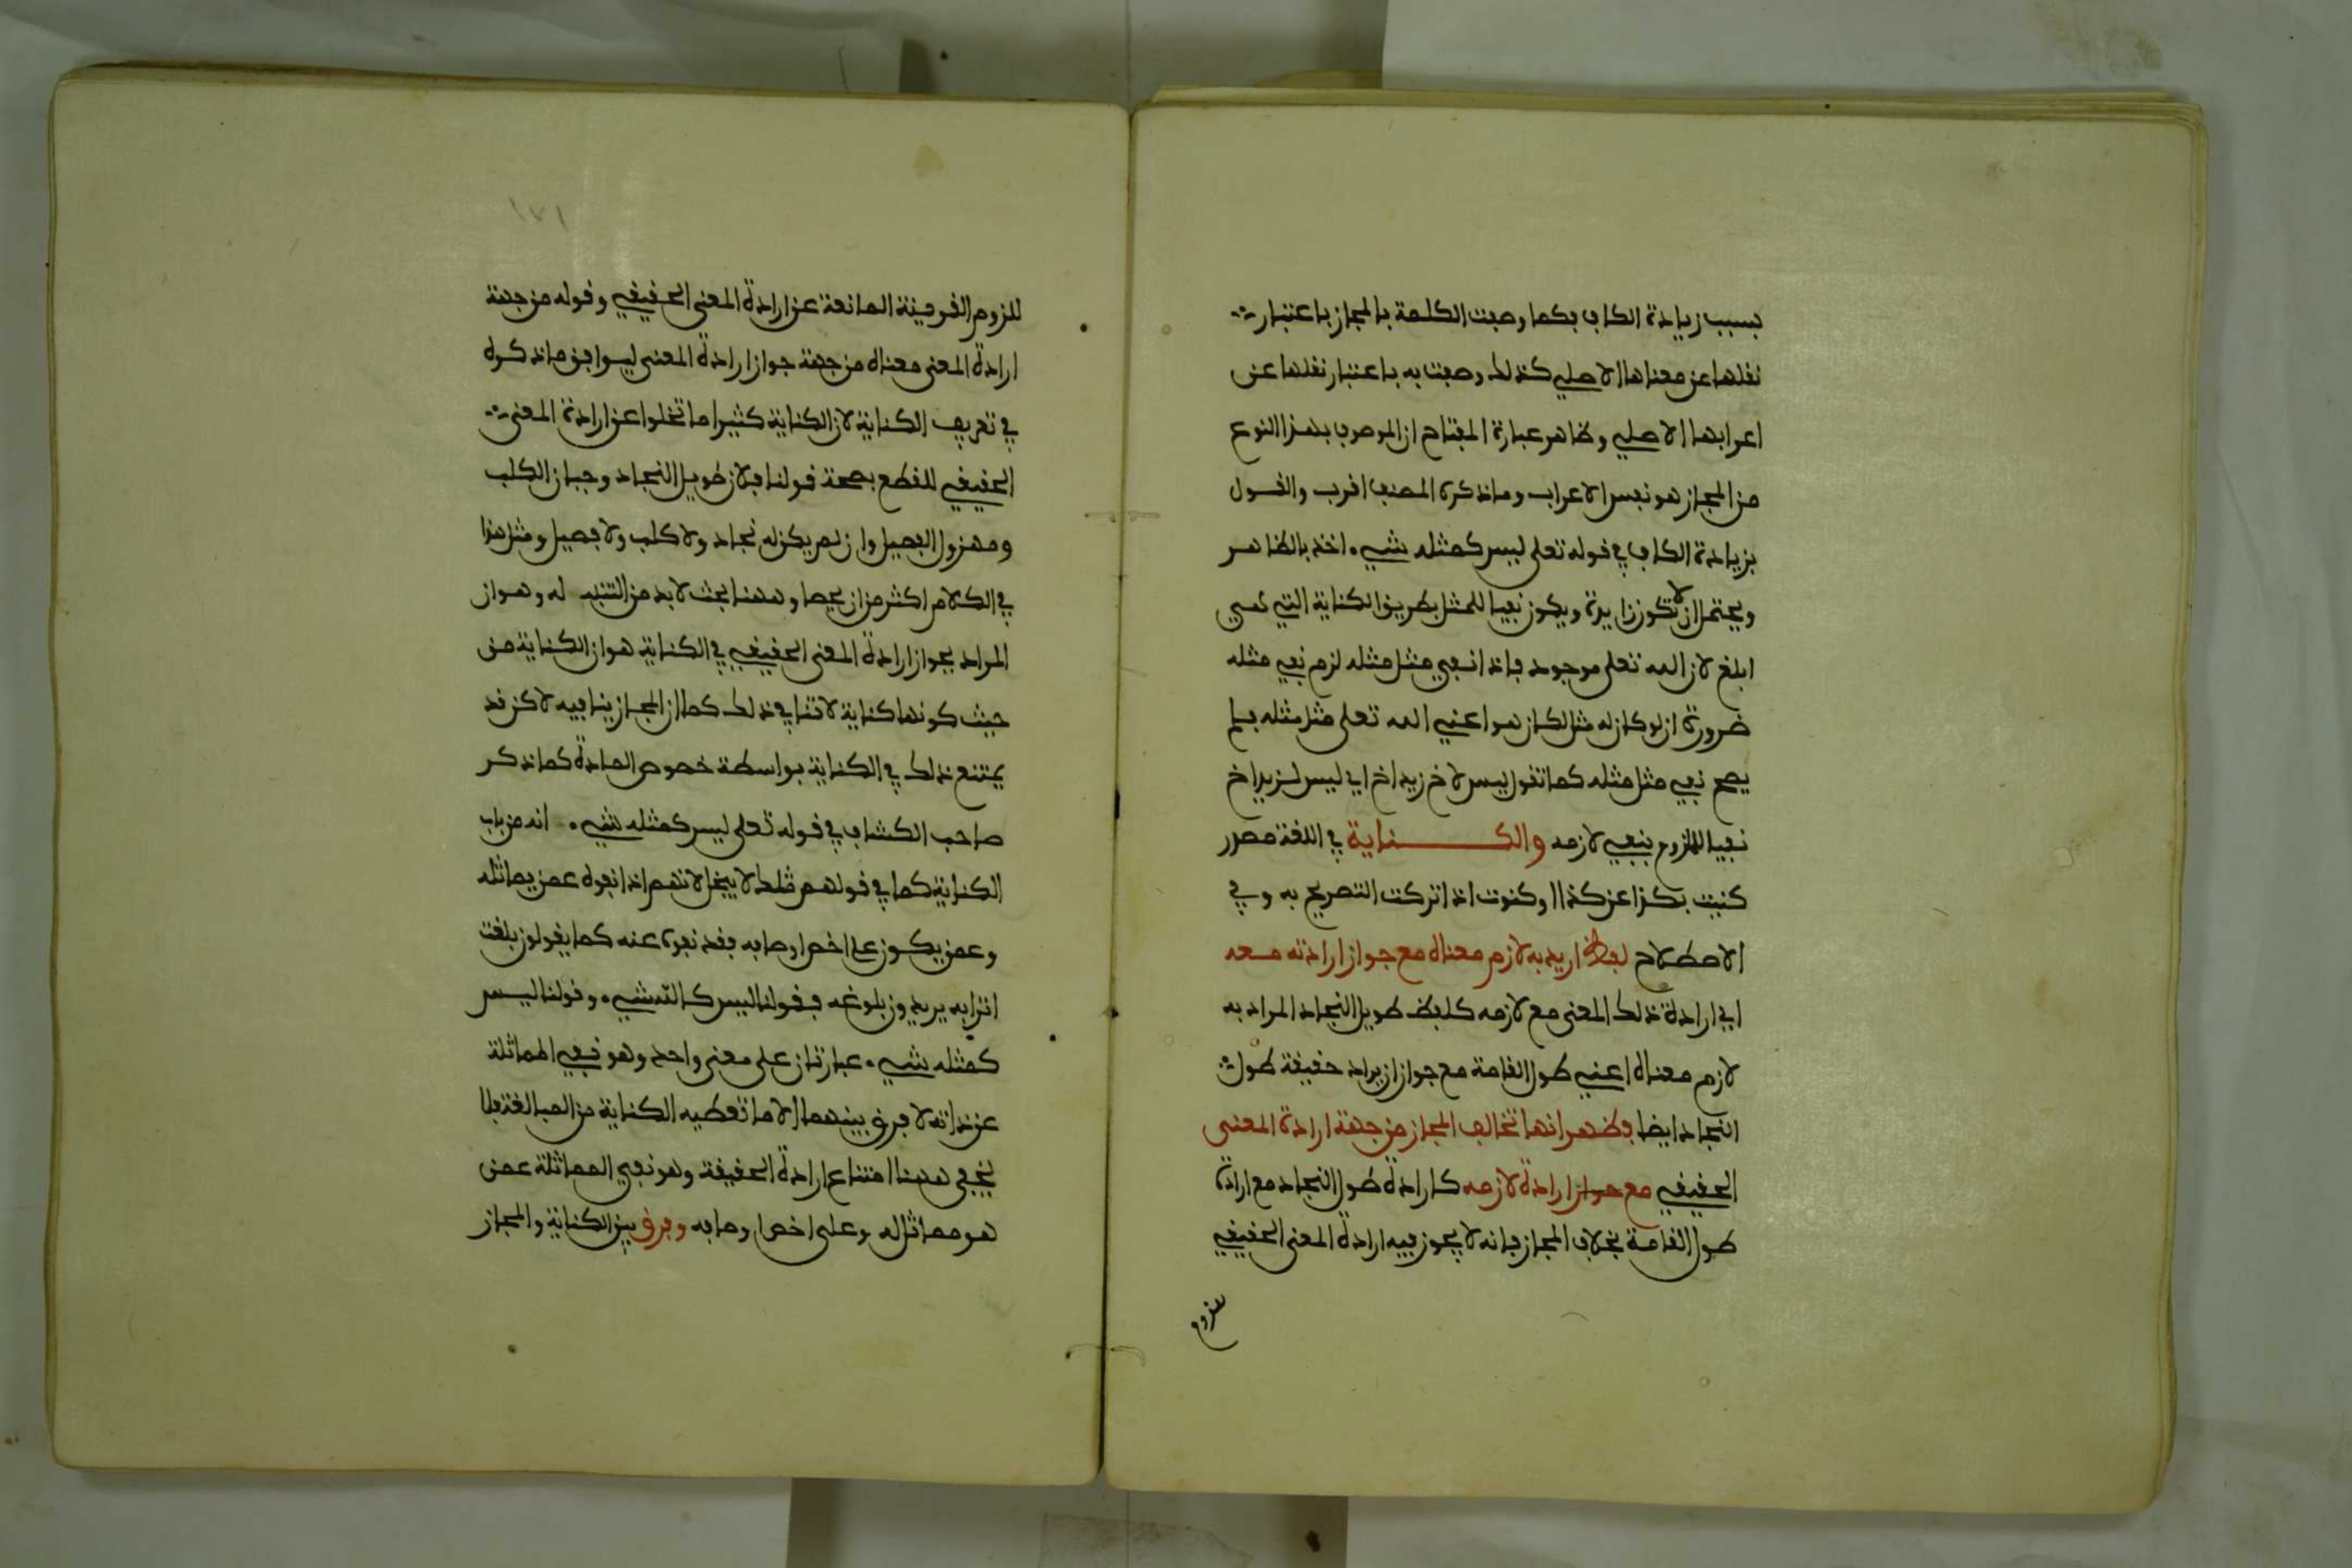 بسبب زيادة الكاف فكما وصفت الكلمة بالمجاز باعتبار
نقلها عن معناها الاصلي كذلك وصفت به باعتبار نقلها عن
اعرابها الاصلي وظاهر عبارة المفتاح ان الموصوف بهذا النوع
من المجاز هو نفس الاعراب وما ذكره المصنف اقرب والقول
بزيادة الكاف في قوله تعلى ليس كمثله شيء اخذ بالظاهر
ويحتمل ان لا تكون زايدة ويكون نفيا للمثل بطريق الكناية التي هي
ابلغ لان الله تعلى موجود فاذا نفي مثل مثله لزم نفي مثله
ضرورة ان لو كان له مثل لكان هو اعني الله تعلى مثل مثله فلم
يصح نفي مثل مثله كما تقول ليس لاخ زيد اخ اي ليس لزيد اخ
نفيا للملزوم بنفي لازمه والكناية في اللغة مصدر
كنيت بكذا عن كذا او كنوت اذا تركت التصريح به وفي
الاصطلاح لفظ اريد به لازم معناه مع جواز ارادته معه
اي ارادة ذلك المعنى مع لازمه كلفظ طويل النجاد المراد به
لازم معناه اعني طول القامة مع جواز ان يراد حقيقة طول
النجاد ايضا فظهر انها تخالف المجاز من جهة ارادة المعنى
الحقيقي مع جواز ارادة لازمه كارادة طول النجاد مع ارادة
طول القامة بخلاف المجاز فانه لا يجوز فيه ارادة المعنى الحقيقي
١٧١
للزوم القرينة المانعة عن ارادة المعنى الحقيقي وقوله من جهة
ارادة المعنى معناه من جهة جواز ارادة المعنى ليوافق ما ذكره
في تعريف الكناية لان الكناية كثيرا ما تخلوا عن ارادة المعنى
الحقيقي للقطع بصحة قولنا فلان طويل النجاد وجبان الكلب
ومهزول الفصيل وان لم يكن له نجاد ولا كلب ولا فصيل ومثل هذا
في الكلام اكثر من ان يحصا وههنا بحث لا بد من التنبه له وهو ان
المراد بجواز ارادة المعنى الحقيقي في الكناية هو ان الكناية من
حيث كونها كناية لا تنافي ذلك كما ان المجاز ينافيه لاكن قد
يمتنع ذلك في الكناية بواسطة خصوص المادة كما ذكر
صاحب الكشاف في قوله تعلى ليس كمثله شيء انه من باب
الكناية كما في قولهم مثلك لا يبخل لانهم اذا نفوه عمن يماثله
وعمن يكون على اخص اوصافه فقد نفوه عنه كما يقولون بلغت
اترابه يريدون بلوغه فقولنا ليس كالله شيء وقولنا ليس
كمثله شيء عبارتان على معنى واحد وهو نفي المماثلة
عن ذاته لا فرق بينهما الا ما تعطيه الكناية من المبالغة فلا
يخفى ههنا امتناع ارادة الحقيقة وهو نفي المماثلة عمن
هو مماثل له وعلى اخص اوصافه وفرق بين الكناية والمجاز